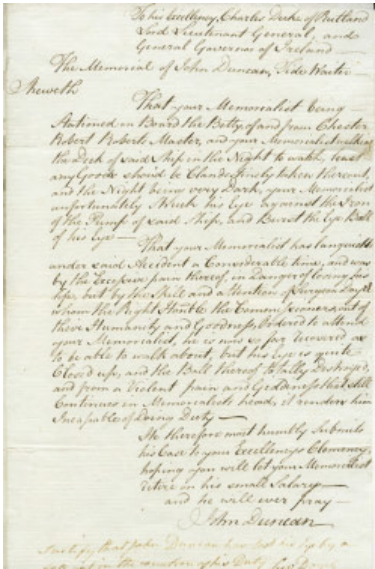 To his Excellency, Charles Duke of Rutland
Lord Lieutenant General, and
General Governor of Ireland
The Memorial of John Duncan, Tide Waiter
Sheweth
That your Memorialist being
Stationed on Board the Betty, of and from Chester
Robert Roberts Master, and your Memorialist walking
the Deck of said Ship in the Night to watch, least
any Goods should be Clandestinely taken thereout,
and the Night being very Dark, your Memorialist
unfortunately Struck his Eye against the Iron
of the Pump of said Ship, and Burst the Eye Ball
of his Eye
That your Memorialist has languished
under said Accident a Considerable time, and was
by the Excessive pain thereof, in Danger of loosing his
life, but by the Skill and attention of Surgeon
whom the Right Honble the Commissioners, out of
these Humanity and Goodness Ordered to attend
your Memorialist, he is now so far recovered as
to be able to walk about, but his Eye is quite
Closed up, and the Ball thereof totally Destroyed,
and from a Violent pain and Giddeness that still
Continues in Memorialists head, it renders him
Incapable of Doing Duty
He therefore most humbly Submits
his Case to your Excellencys Clemency,
hoping you will let your Memorialist
retire on his small Salary
and he will ever pray
John Duncan
I certify that John Duncan has lost his Eye by a
in the execution of his Duty